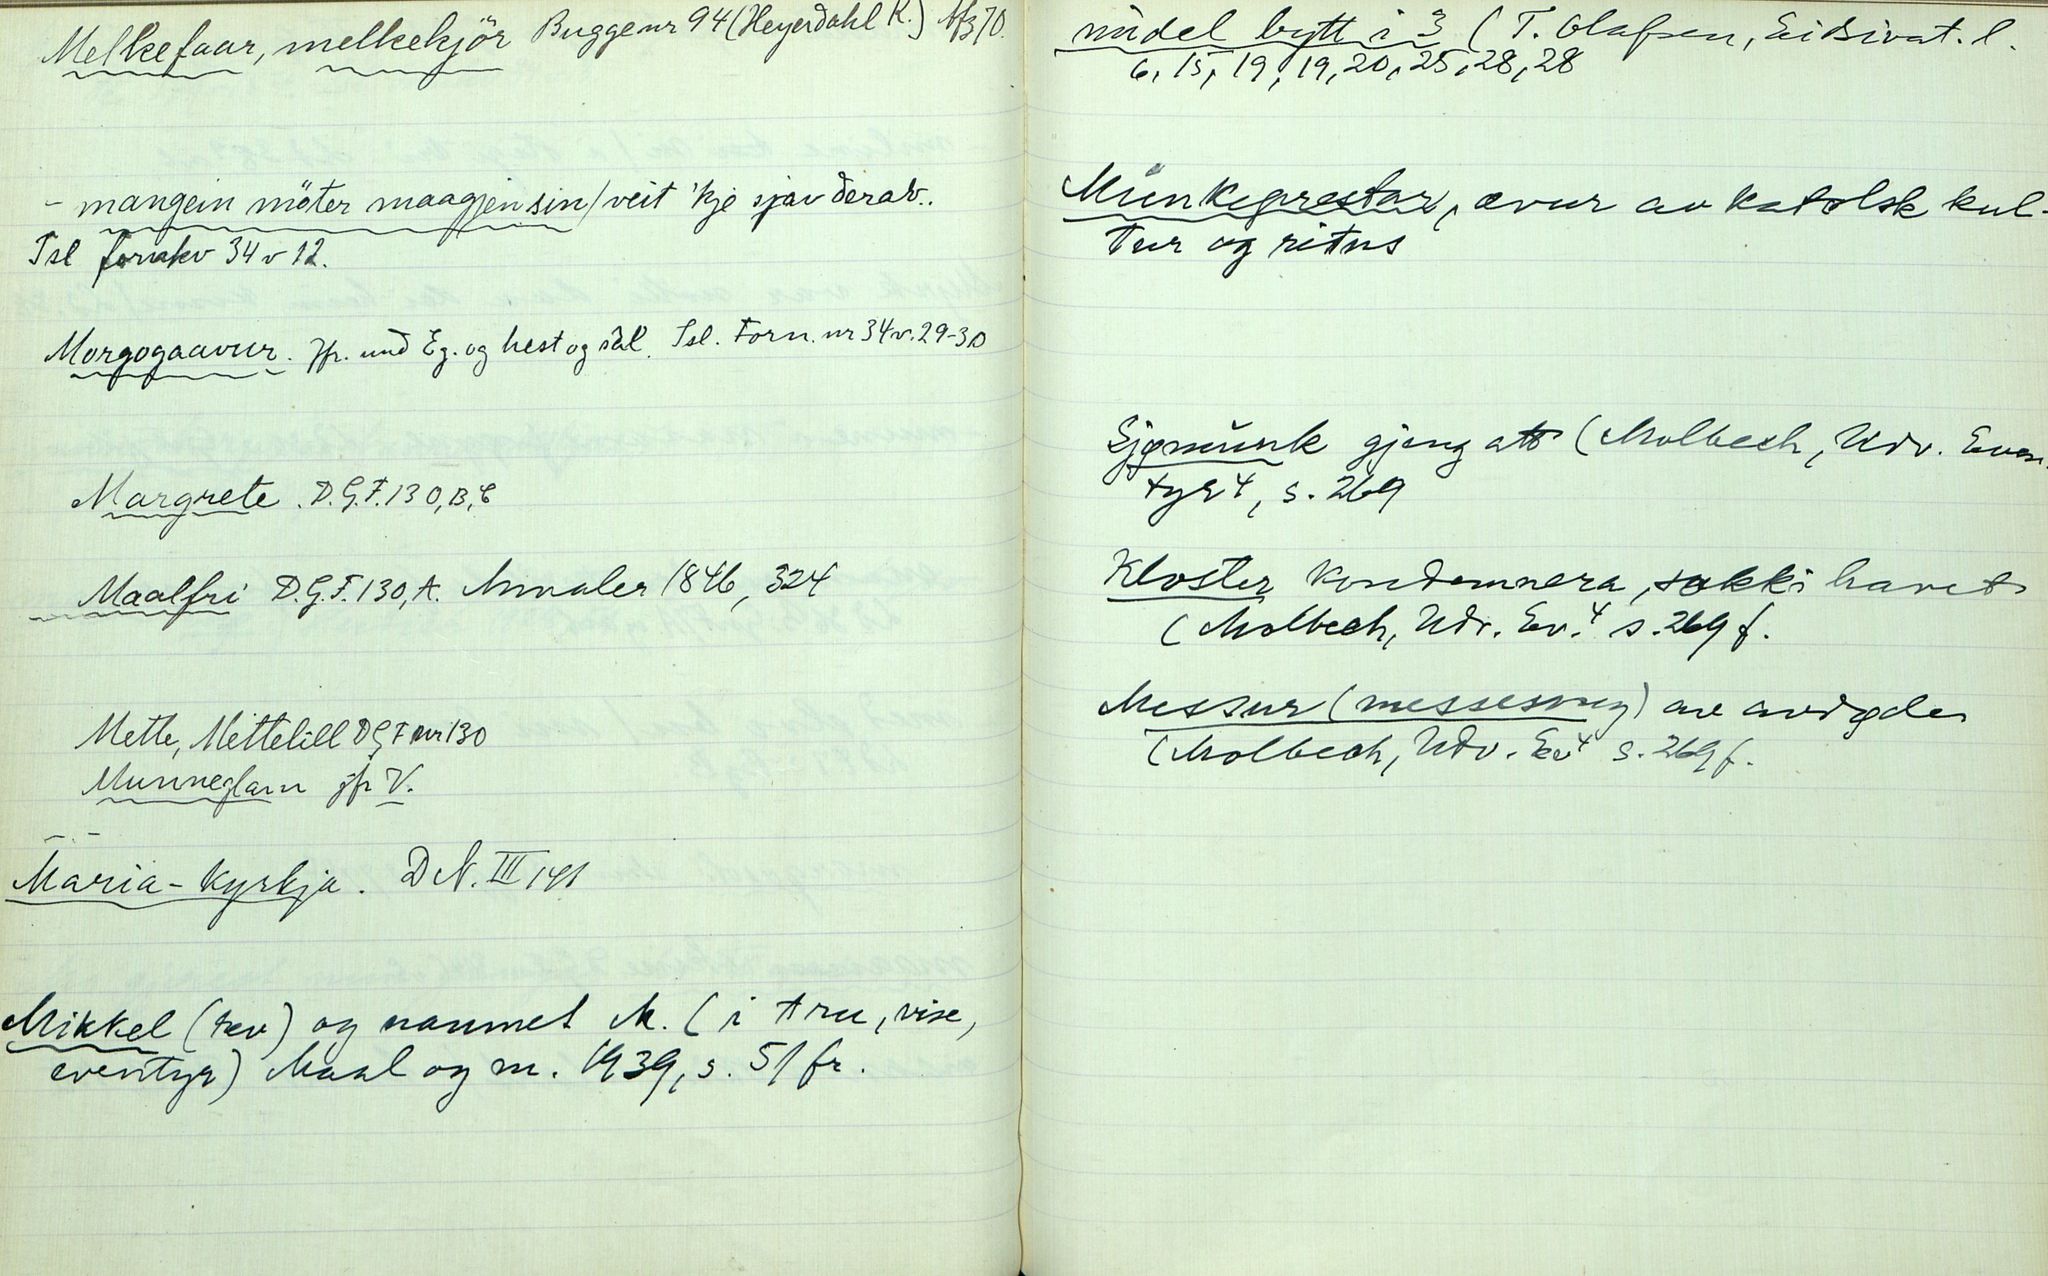 Melkefaar, melkekjör Buggenr 94 (Heyerdahl K.) Afz 70.
- mangein möter maagjen sin / veit 'kje sjav derav..
Isl fornkv 34 v 12.
Morgogaavur. Jfr. und Eg. og hest og sal. Isl. Forn. nr 34 v. 29-30
Margrete. D.G.F. 130, B, C
Maalfri D.G.F. 130, A. Annaler 1846, 324
Mette, Mettelill DGF nr 130
Munneglam jfr V.
Maria-kyrkja. DN. III 141
Mikkel (rev) og namnet M. (i tru, vise,
eventyr) Maal og m. 1939, s. 51 fr.
mdel bytt i 3 (T. Olafsen, Eidsivat. l.
6, 15, 19, 19, 20, 25, 28, 28
Munkeprestar, evur av katolsk kul-
tur og ritus
Sjømunk gjeng att (Molbech, Udv. Even-
tyr 4, s. 269
Kloster kondemnera, sokk i havet
(Molbech, Udv. Ev. 4 s. 269 f.
Messur (messesong) av avdøde
(Molbech, Udv. Ev 4 s. 269 f.